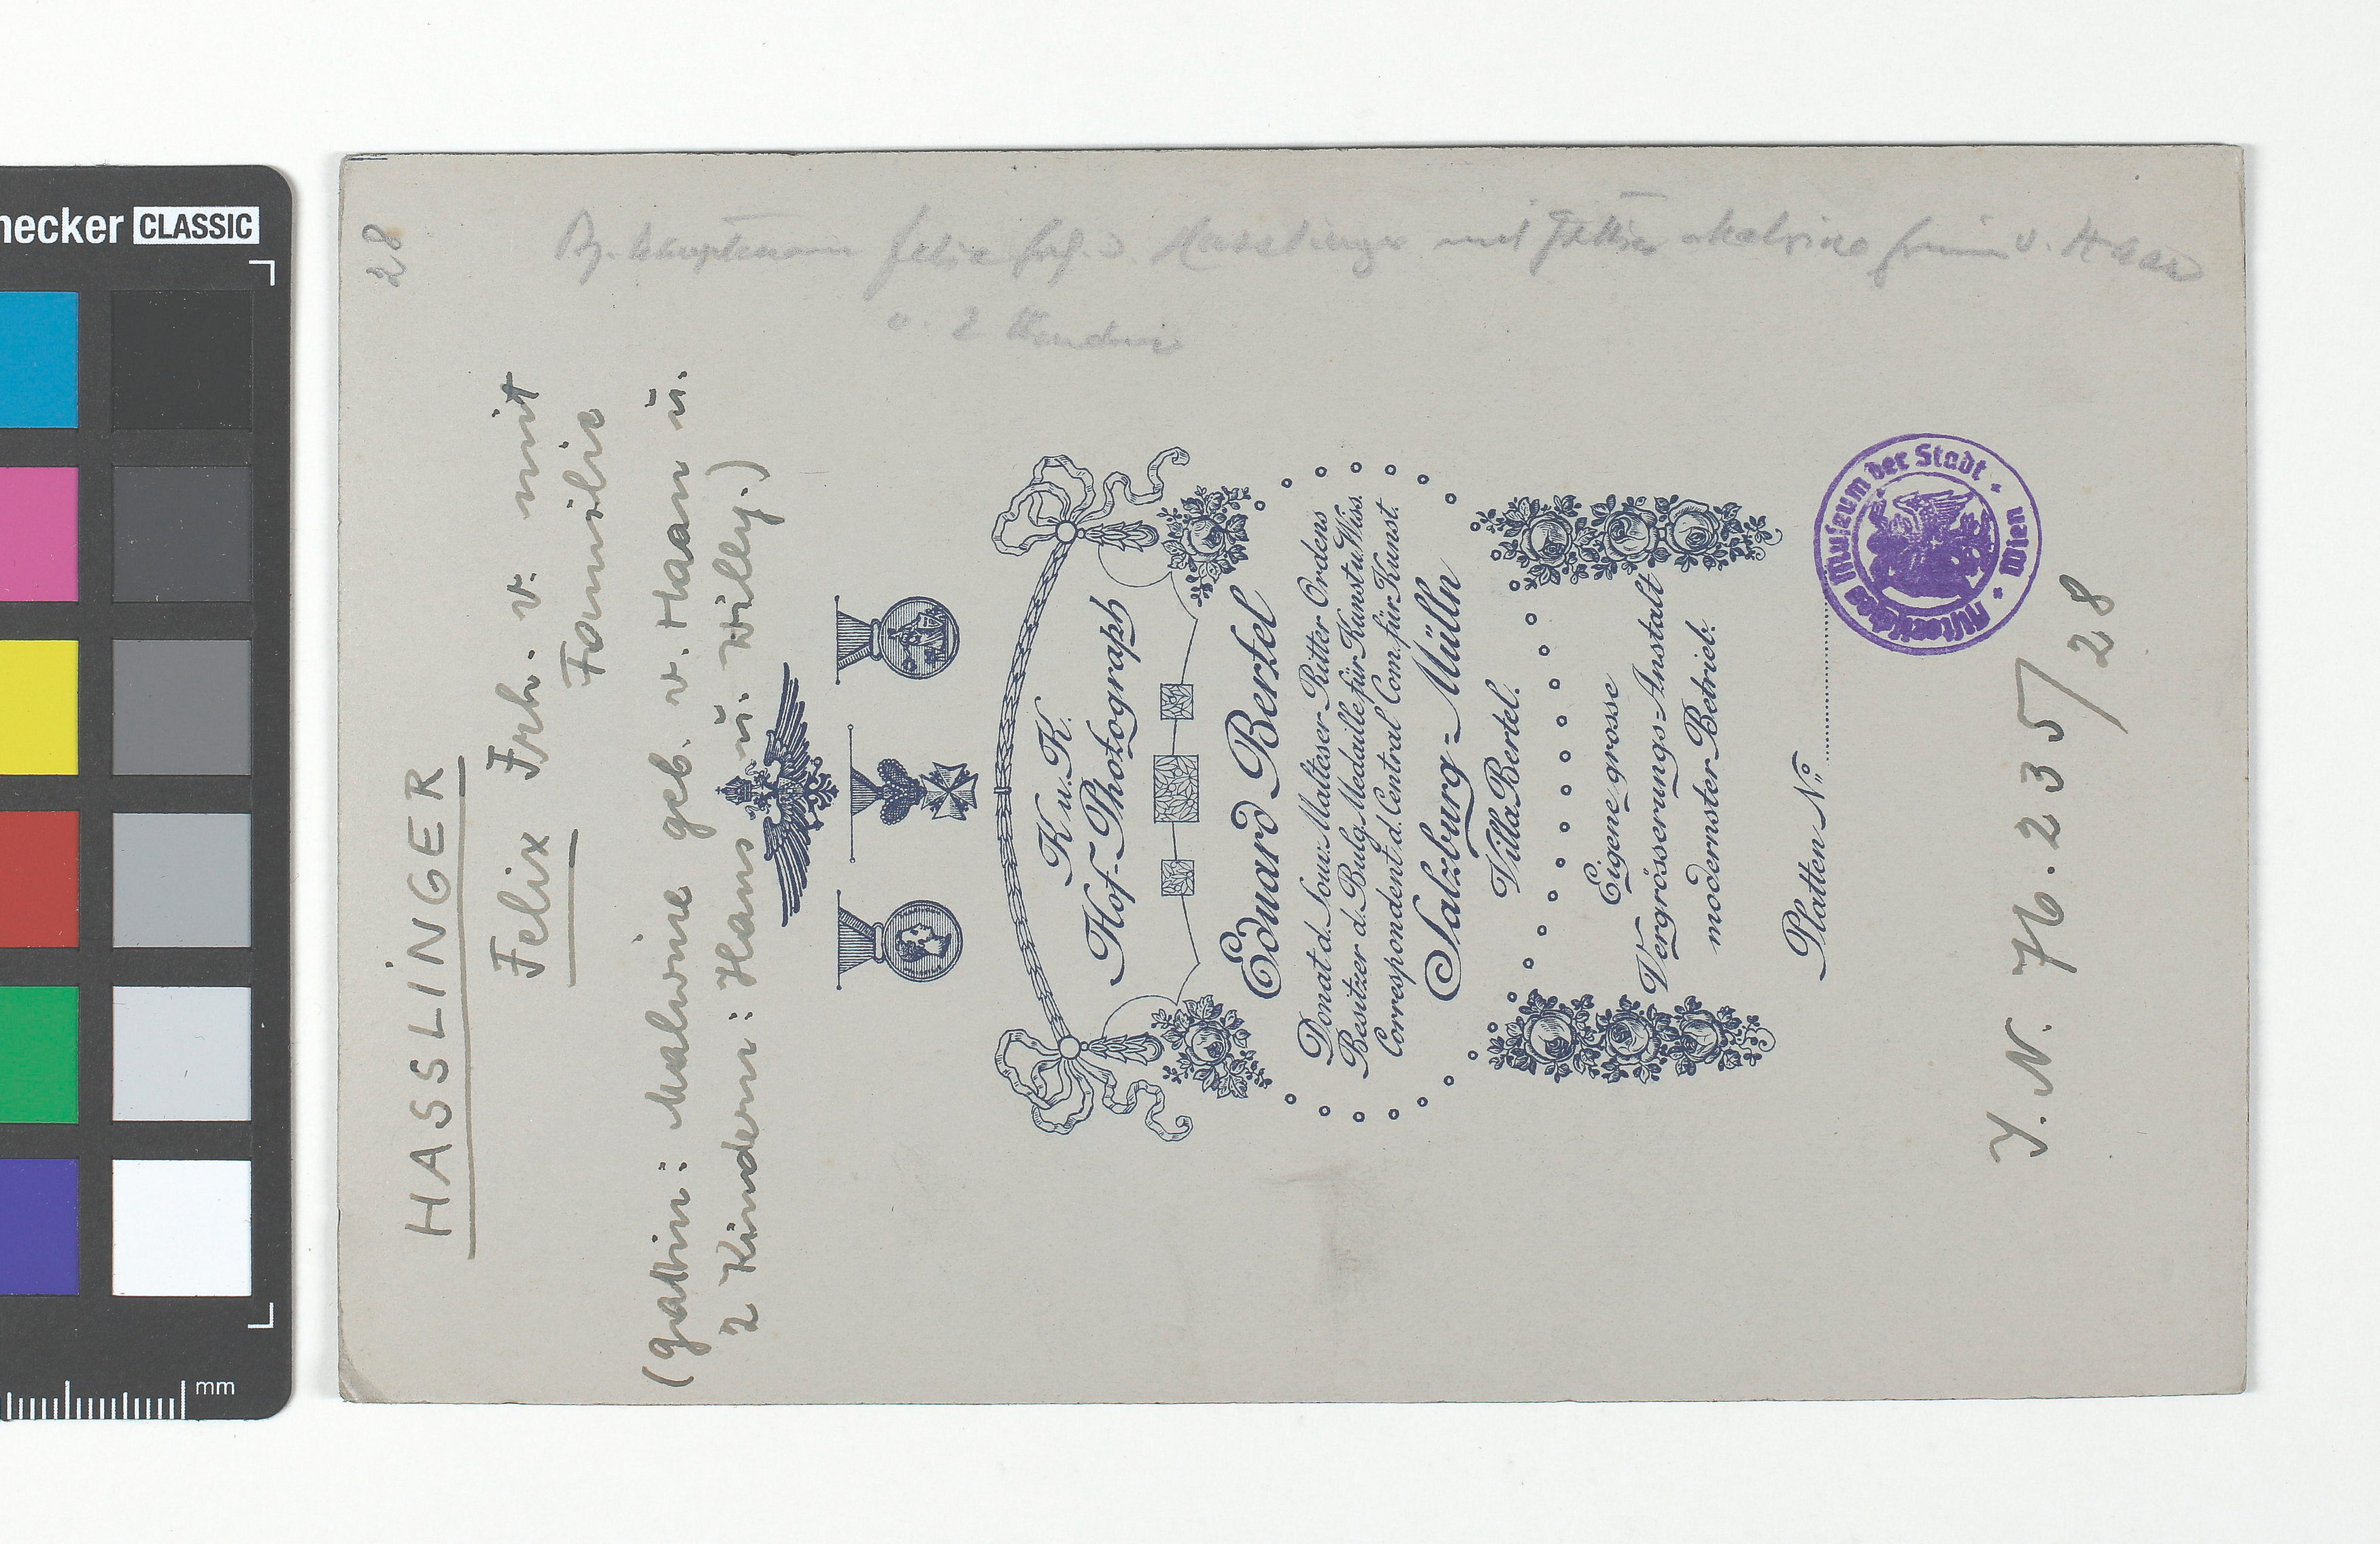 necker CLASSIC
28
Bz. Hauptmann Felix Frh. v. Hasslinger mit Gattin Malvine Freiin v. Haan
u. 2 Kinder
HASSLINGER
Felix Frh. v. mit
Familie
(Gattin: Malwine geb. v. Haan u.
2 Kindern: Hans u. Willy.)
K. u. K.
Hof-Photograph
Eduard Bertel
Donat d. Souv. Malteser-Ritter Ordens
Besitzer d. Bulg. Medaille für Kunst u. Wiss.
Correspondent d. Central Com. für Kunst.
Salzburg-Mülln
Villa Bertel.
Eigene grosse
Vergrösserungs-Anstalt
modernster Betrieb.
Platten No
Historisches Museum der Stadt Wien
I. N. 76.235/28
mm